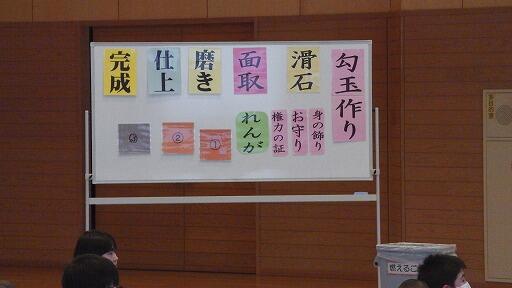 勾玉作り
滑石
面取
磨き
仕上
完成
身の飾り
お守り
権力の証
れんが
①
②
燃えるご